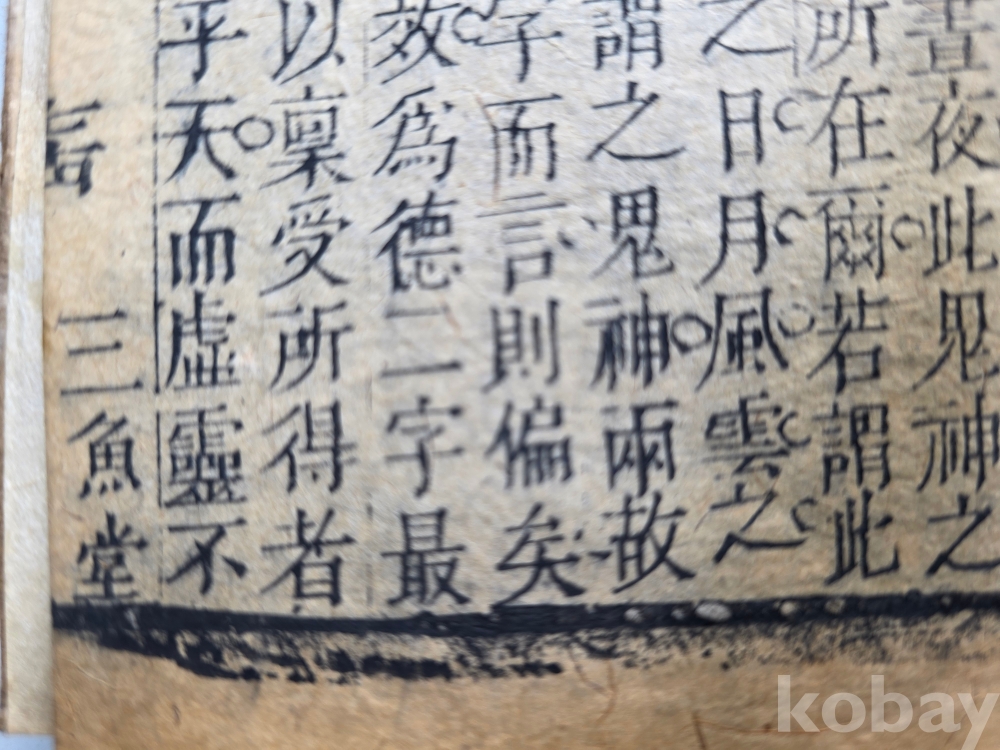 晝夜此鬼神之
所在爾若謂此
之日月風雲之
謂之鬼神兩故
字而言則偏矣
效爲德二字最
以稟受所得者
乎天而虛靈不
三魚堂
kobay